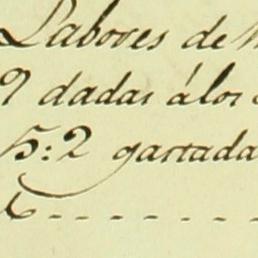 Labores de
9 dadas á los
5:2 gastada